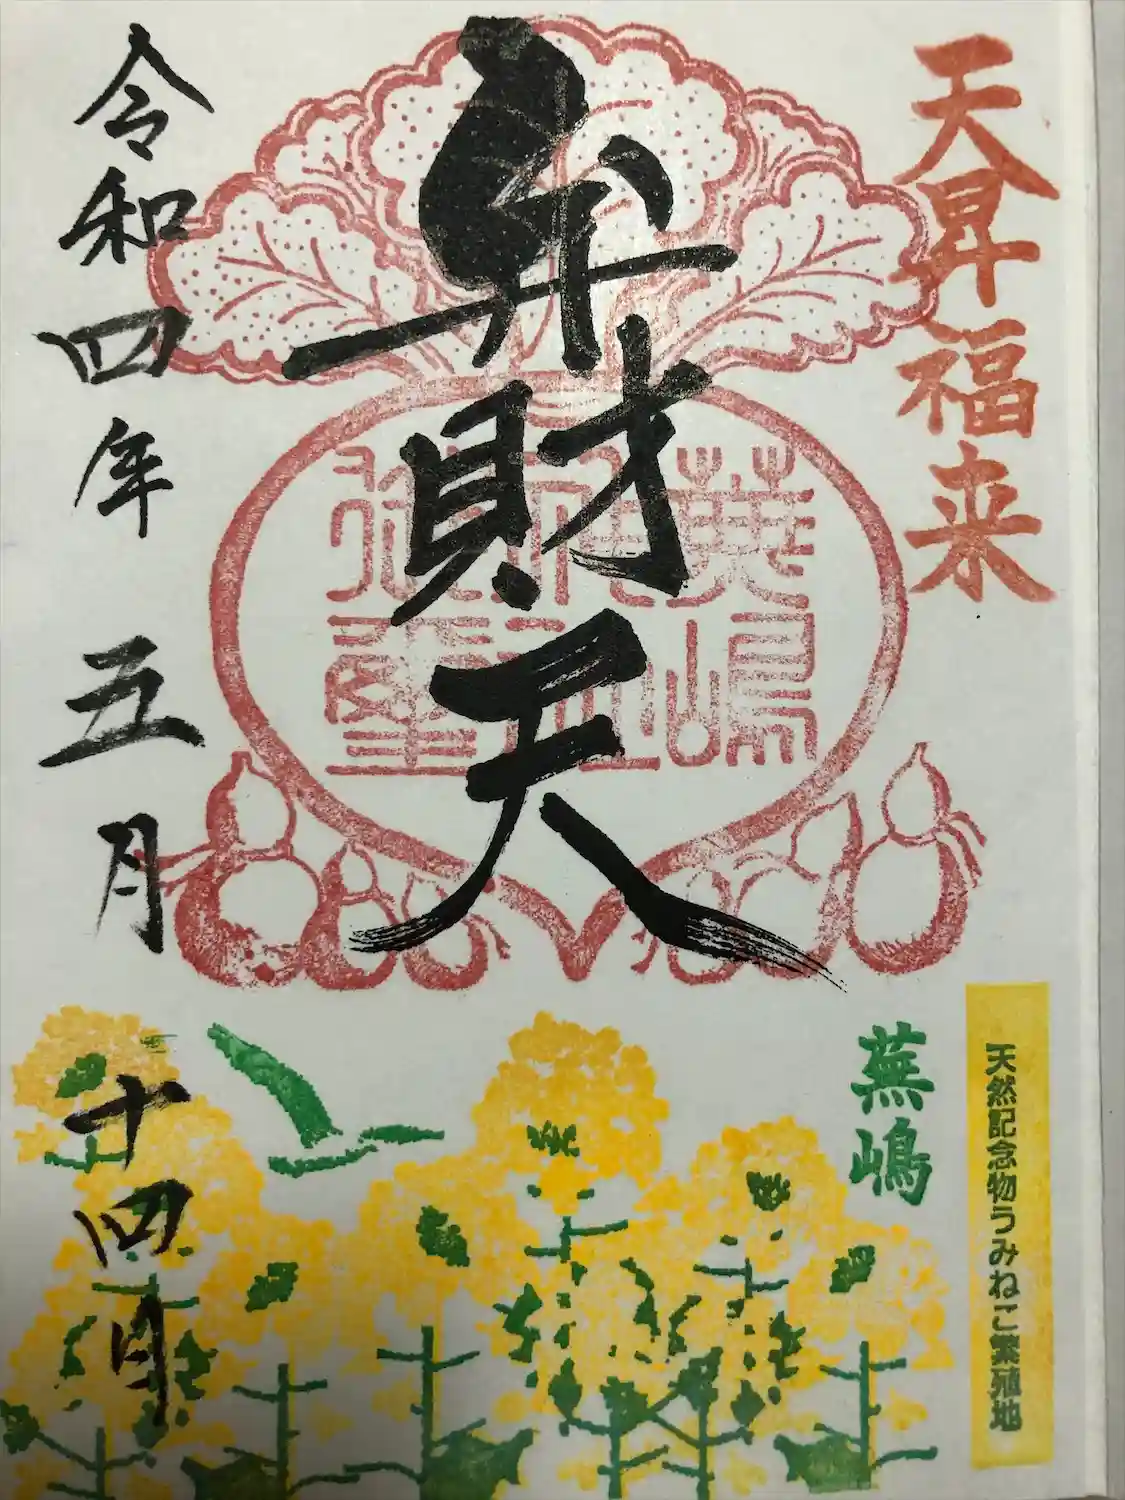 天昇福来
弁財天
蕪嶋
令和四年五月十四日
蕪嶋
天然記念物うみねこ繁殖地